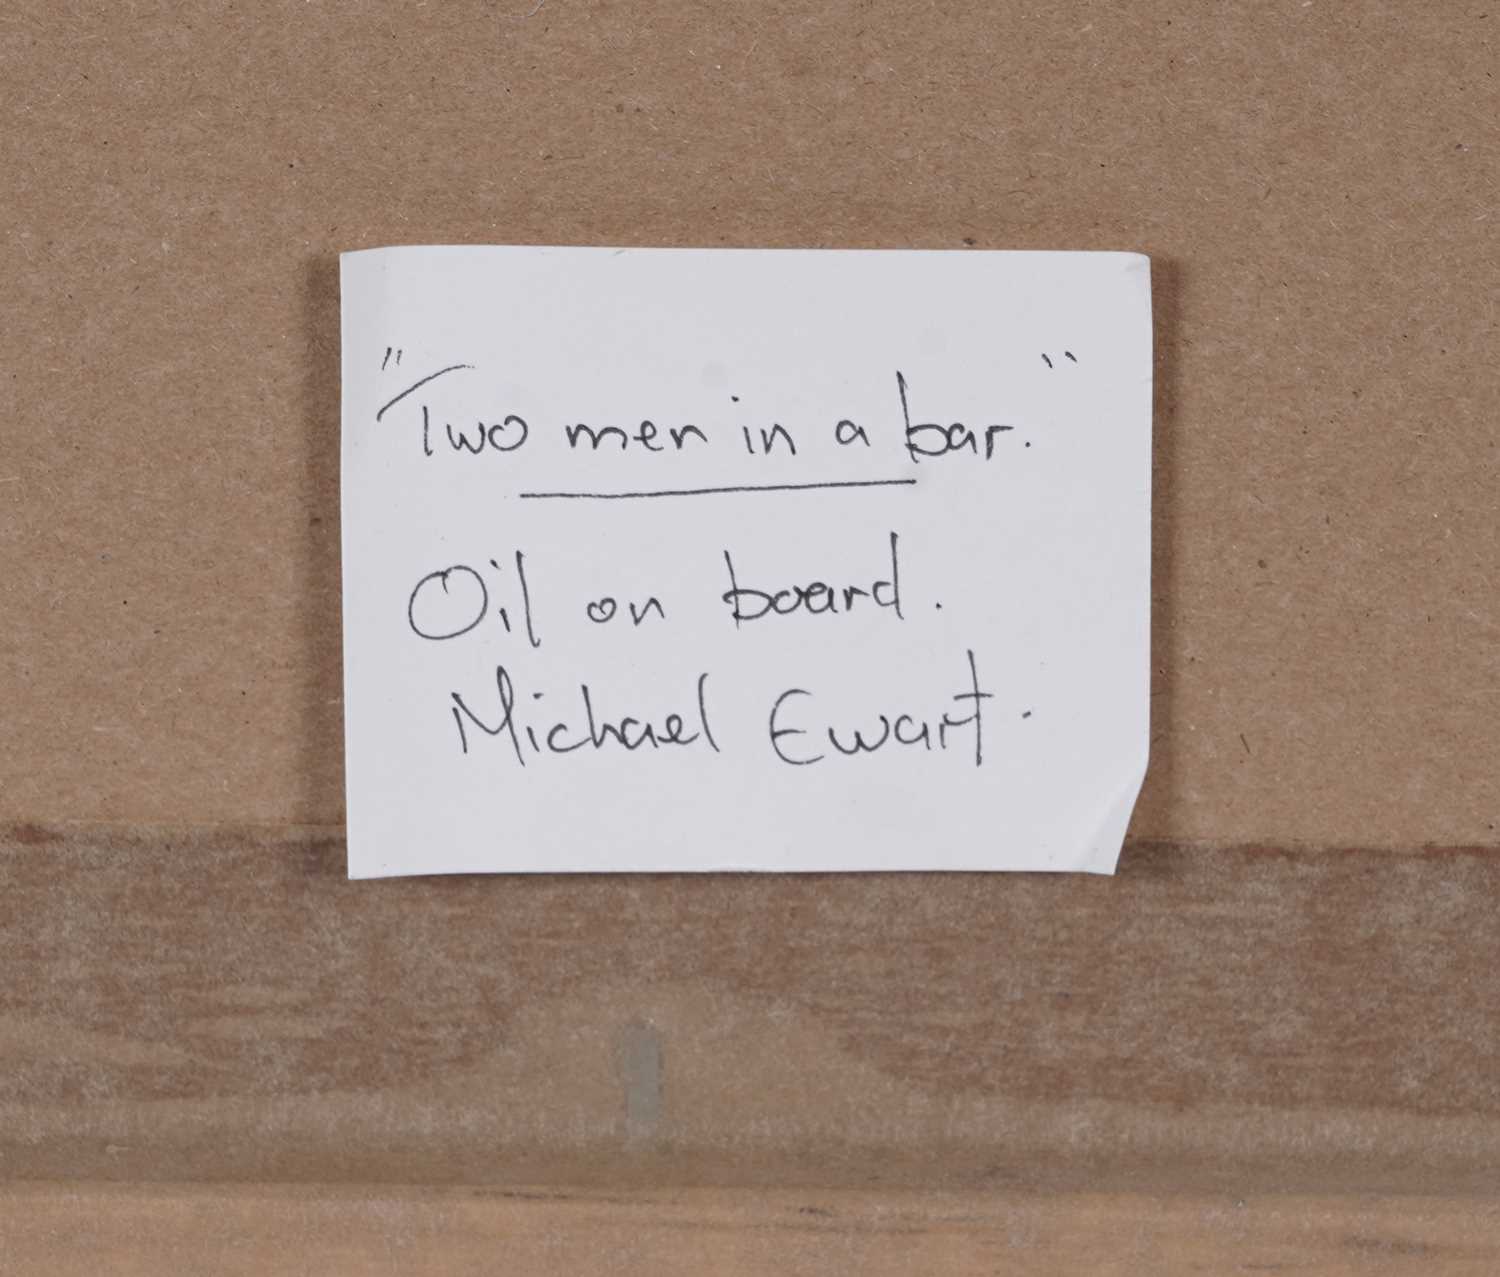 "Two men in a bar."
Oil on board.
Michael Ewart.